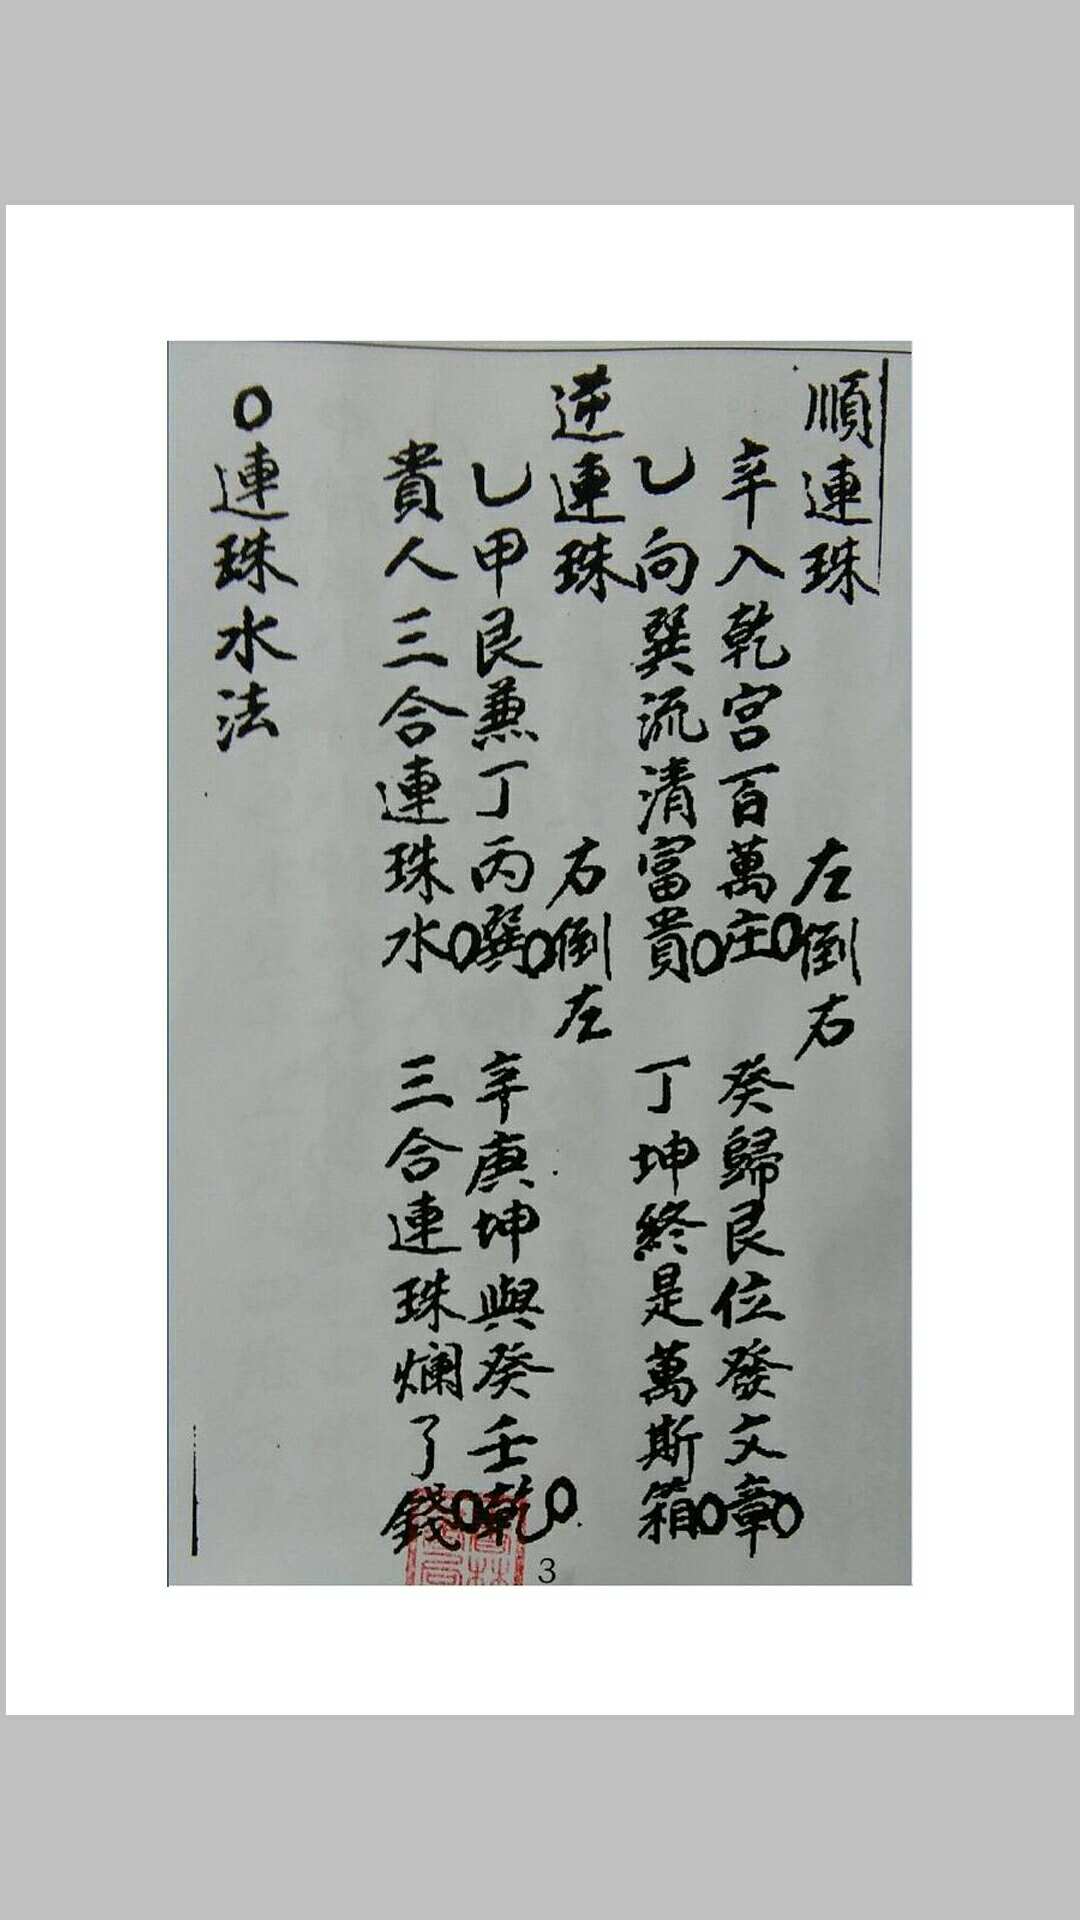 順連珠　左倒右
辛入乾宮百萬庄○癸歸艮位發文章○
乙向巽流清富貴○丁坤終是萬斯箱○
逆連珠　右倒左
乙甲艮兼丁丙巽○辛庚坤與癸壬乾○
貴人三合連珠水○三合連珠爛了錢○
○連珠水法
3